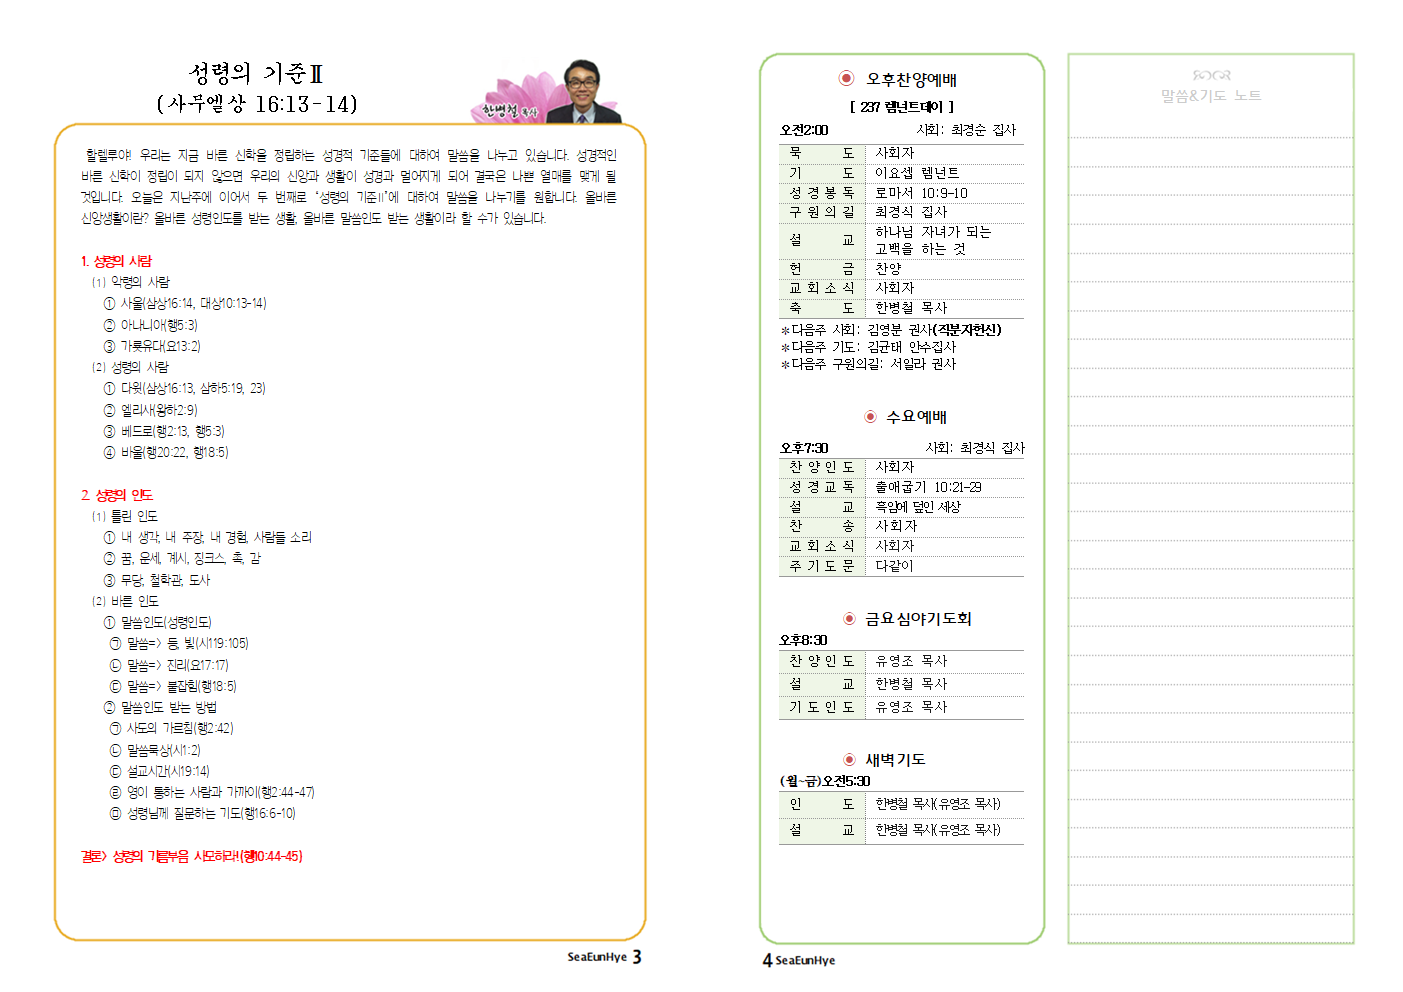 성령의 기준Ⅱ
(사무엘상 16:13-14)
한병철 목사
할렐루야! 우리는 지금 바른 신학을 정립하는 성경적 기준들에 대하여 말씀을 나누고 있습니다. 성경적인
바른 신학이 정립이 되지 않으면 우리의 신앙과 생활이 성경과 멀어지게 되어 결국은 나쁜 열매를 맺게 될
것입니다. 오늘은 지난주에 이어서 두 번째로 “성령의 기준Ⅱ”에 대하여 말씀을 나누기를 원합니다. 올바른
신앙생활이란? 올바른 성령인도를 받는 생활, 올바른 말씀인도 받는 생활이라 할 수가 있습니다.
1. 성령의 사람
(1) 악령의 사람
① 사울(삼상16:14, 대상10:13-14)
② 아나니아(행5:3)
③ 가룟유다(요13:2)
(2) 성령의 사람
① 다윗(삼상16:13, 삼하5:19, 23)
② 엘리사(왕하2:9)
③ 베드로(행2:13, 행5:3)
④ 바울(행20:22, 행18:5)
2. 성령의 인도
(1) 틀린 인도
① 내 생각, 내 주장, 내 경험, 사람들 소리
② 꿈, 운세, 계시, 징크스, 촉, 감
③ 무당, 철학관, 도사
(2) 바른 인도
① 말씀인도(성령인도)
㉠ 말씀=> 등, 빛(시119:105)
㉡ 말씀=> 진리(요17:17)
㉢ 말씀=> 붙잡힘(행18:5)
② 말씀인도 받는 방법
㉠ 사도의 가르침(행2:42)
㉡ 말씀묵상(시1:2)
㉢ 설교시간(시19:14)
㉣ 영이 통하는 사람과 가까이(행2:44-47)
㉤ 성령님께 질문하는 기도(행16:6-10)
결론> 성령의 기름부음 사모하라!(행10:44-45)
SeaEunHye 3
오후찬양예배
[ 237 렘넌트데이 ]
오전2:00 사회: 최경순 집사
묵 도 사회자
기 도 이요셉 렘넌트
성경봉독 로마서 10:9-10
구원의길 최경식 집사
설 교 하나님 자녀가 되는
고백을 하는 것
헌 금 찬양
교회소식 사회자
축 도 한병철 목사
*다음주 사회: 김영분 권사(직분자헌신)
*다음주 기도: 김균태 안수집사
*다음주 구원의길: 서일라 권사
수요예배
오후7:30 사회: 최경식 집사
찬양인도 사회자
성경교독 출애굽기 10:21-29
설 교 흑암에 덮인 세상
찬 송 사회자
교회소식 사회자
주기도문 다같이
금요심야기도회
오후8:30
찬양인도 유영조 목사
설 교 한병철 목사
기도인도 유영조 목사
새벽기도
(월~금)오전5:30
인 도 한병철 목사(유영조 목사)
설 교 한병철 목사(유영조 목사)
4 SeaEunHye
말씀&기도 노트